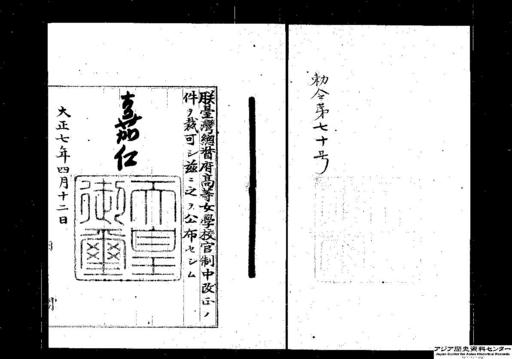 勅令第七十号
朕臺灣總督府高等女學校官制中改正ノ
件ヲ裁可シ茲ニ之ヲ公布セシム
嘉仁
天皇
御璽
大正七年四月十二日
アジア歴史資料センター
Japan Center for Asian Historical Records